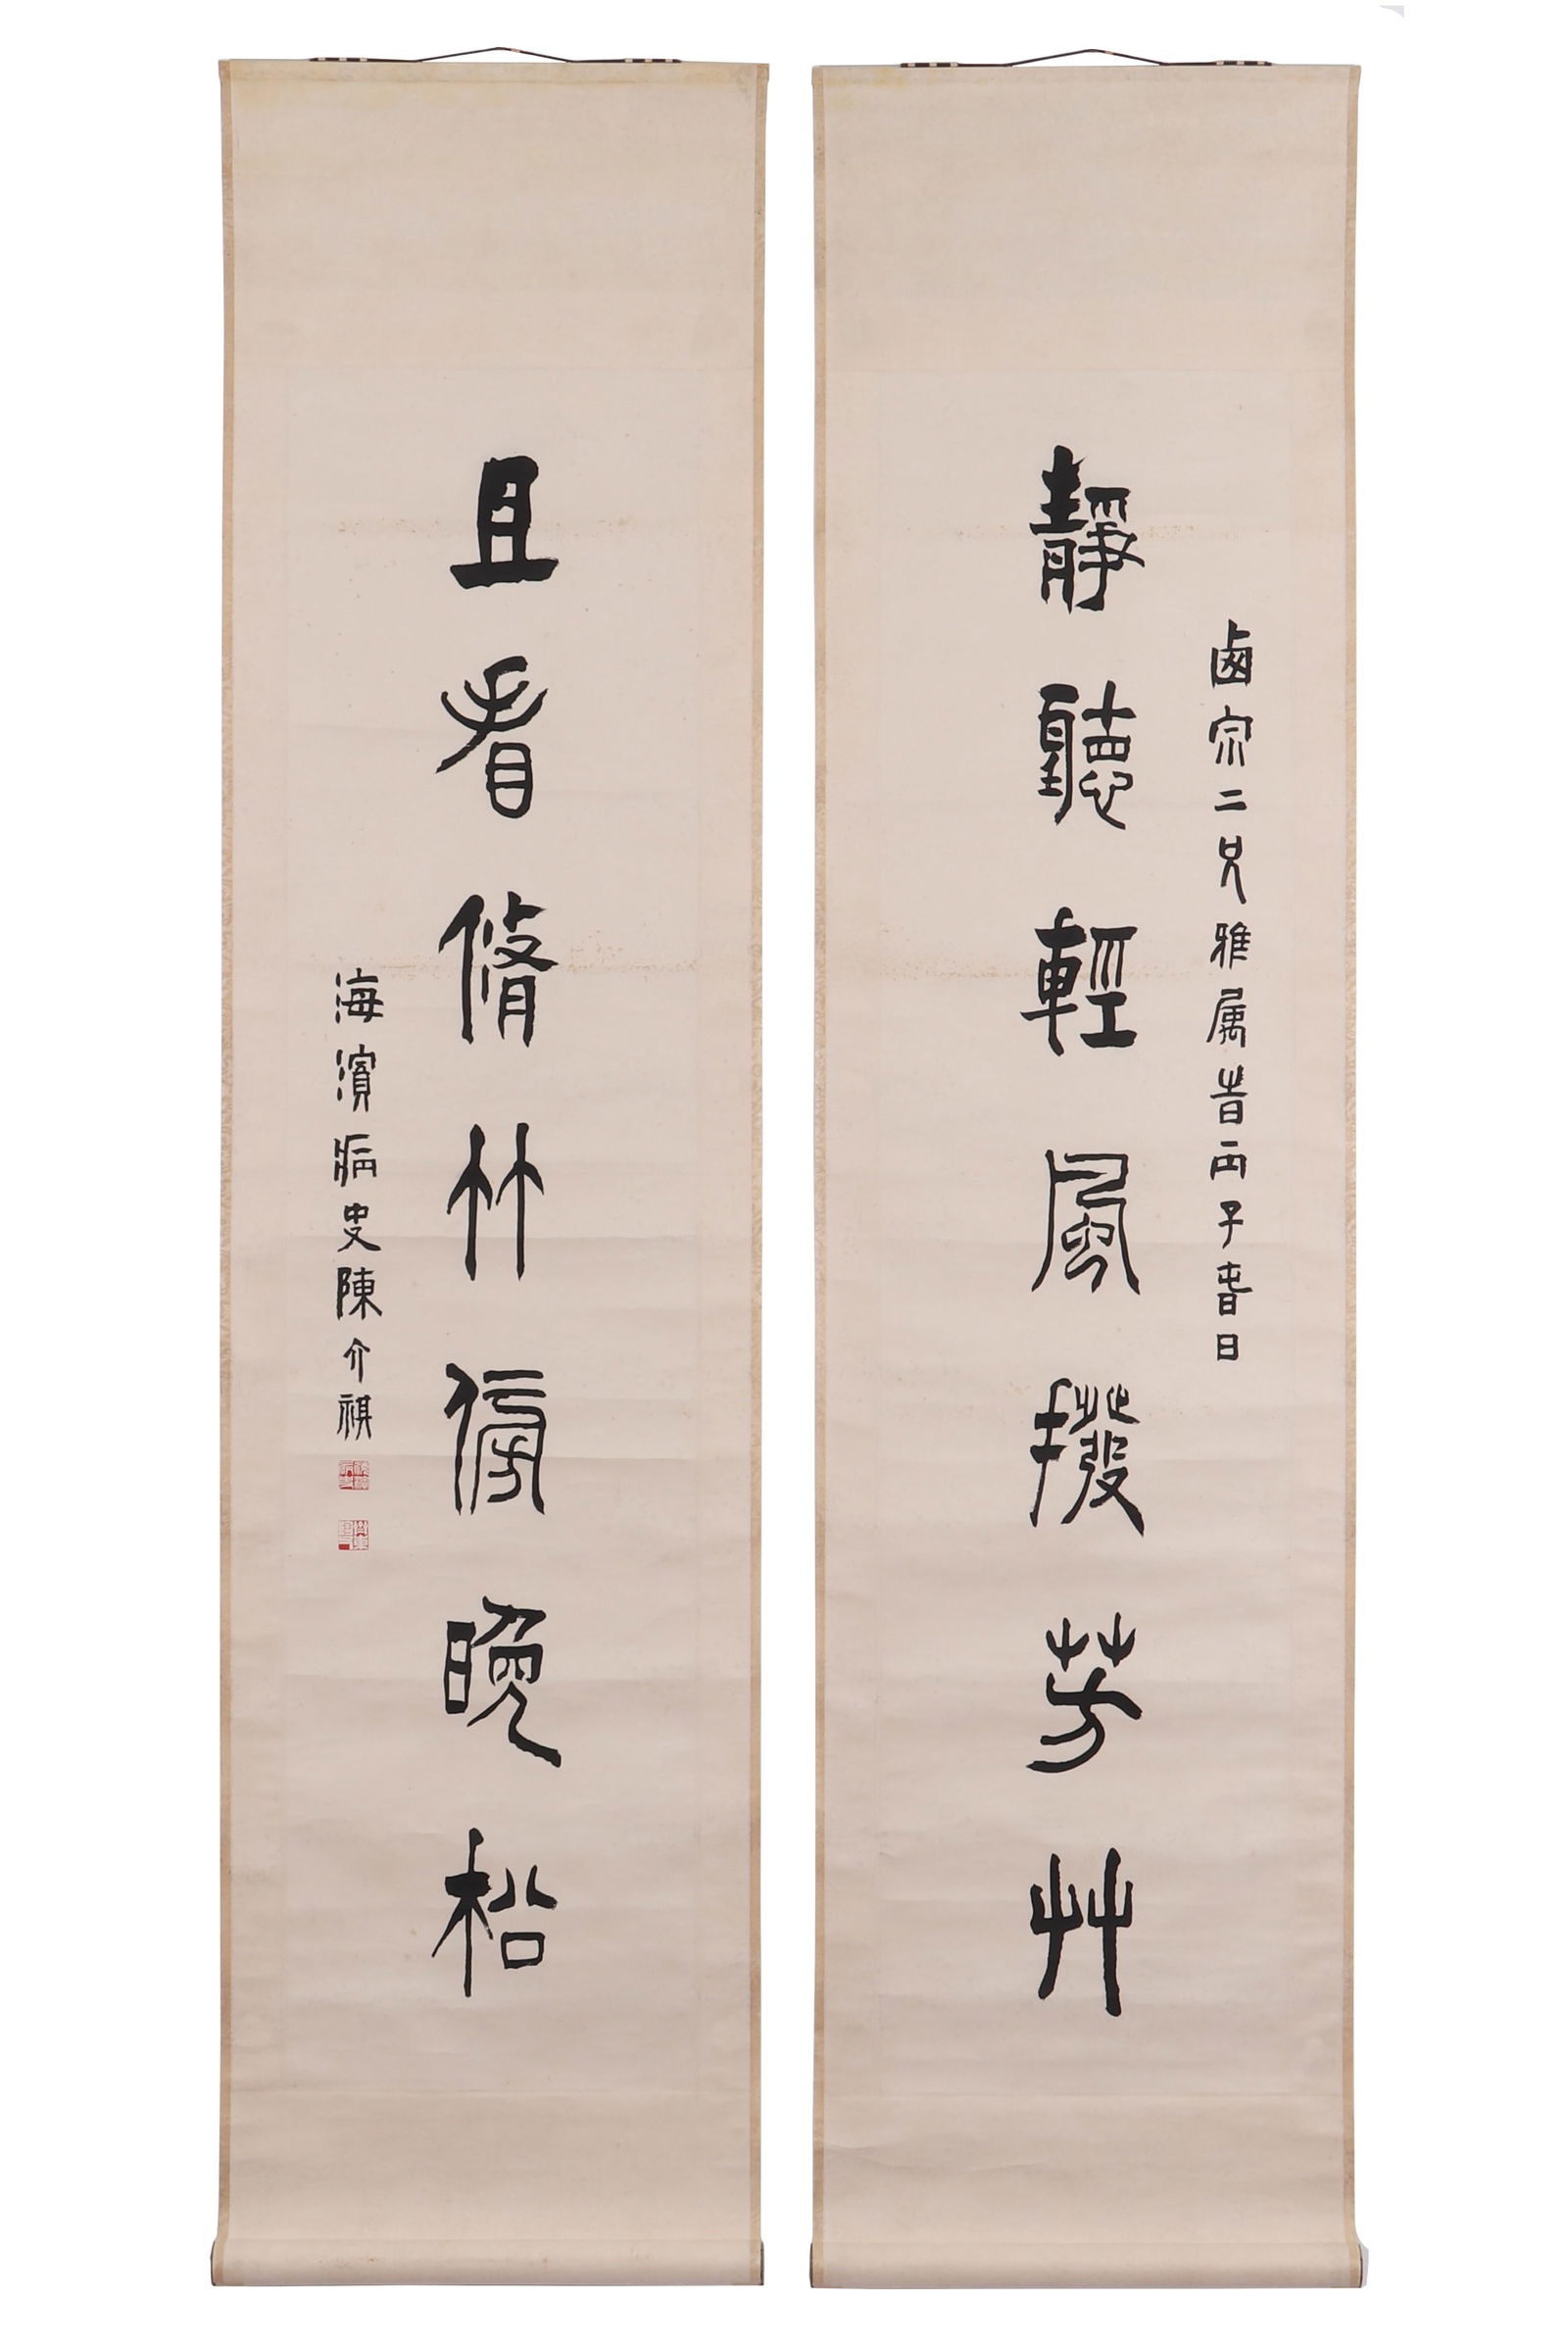 鹵宗二兄雅屬旹丙子春日
靜聽輕風撥芳艸
且看脩竹傍晚松
海濱病史陳介祺